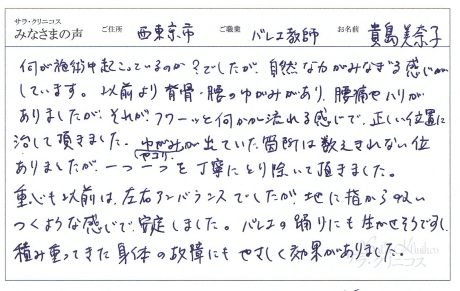 サラ・クリニコス
みなさまの声 ご住所 西東京市 ご職業 バレエ教師 お名前 貴島美奈子
何が施術中起こっているのか?でしたが、自然な力がみなぎる感じが
しています。以前より背骨・腰のゆがみがあり、腰痛やハリが
ありましたが、それが、フワーッと何かが流れる感じで、正しい位置に
治して頂きました。ゆがみが出ていた箇所は数えきれない位
やコリ
ありましたが、一つ一つを丁寧にとり除いて頂きました。
重心も以前は、左右アンバランスでしたが地に指から吸い
つくような感じで、安定しました。バレエの踊りにも生かせそうですし、
積み重ってきた身体の故障にもやさしく効果がありました。
ラ・クリニコス